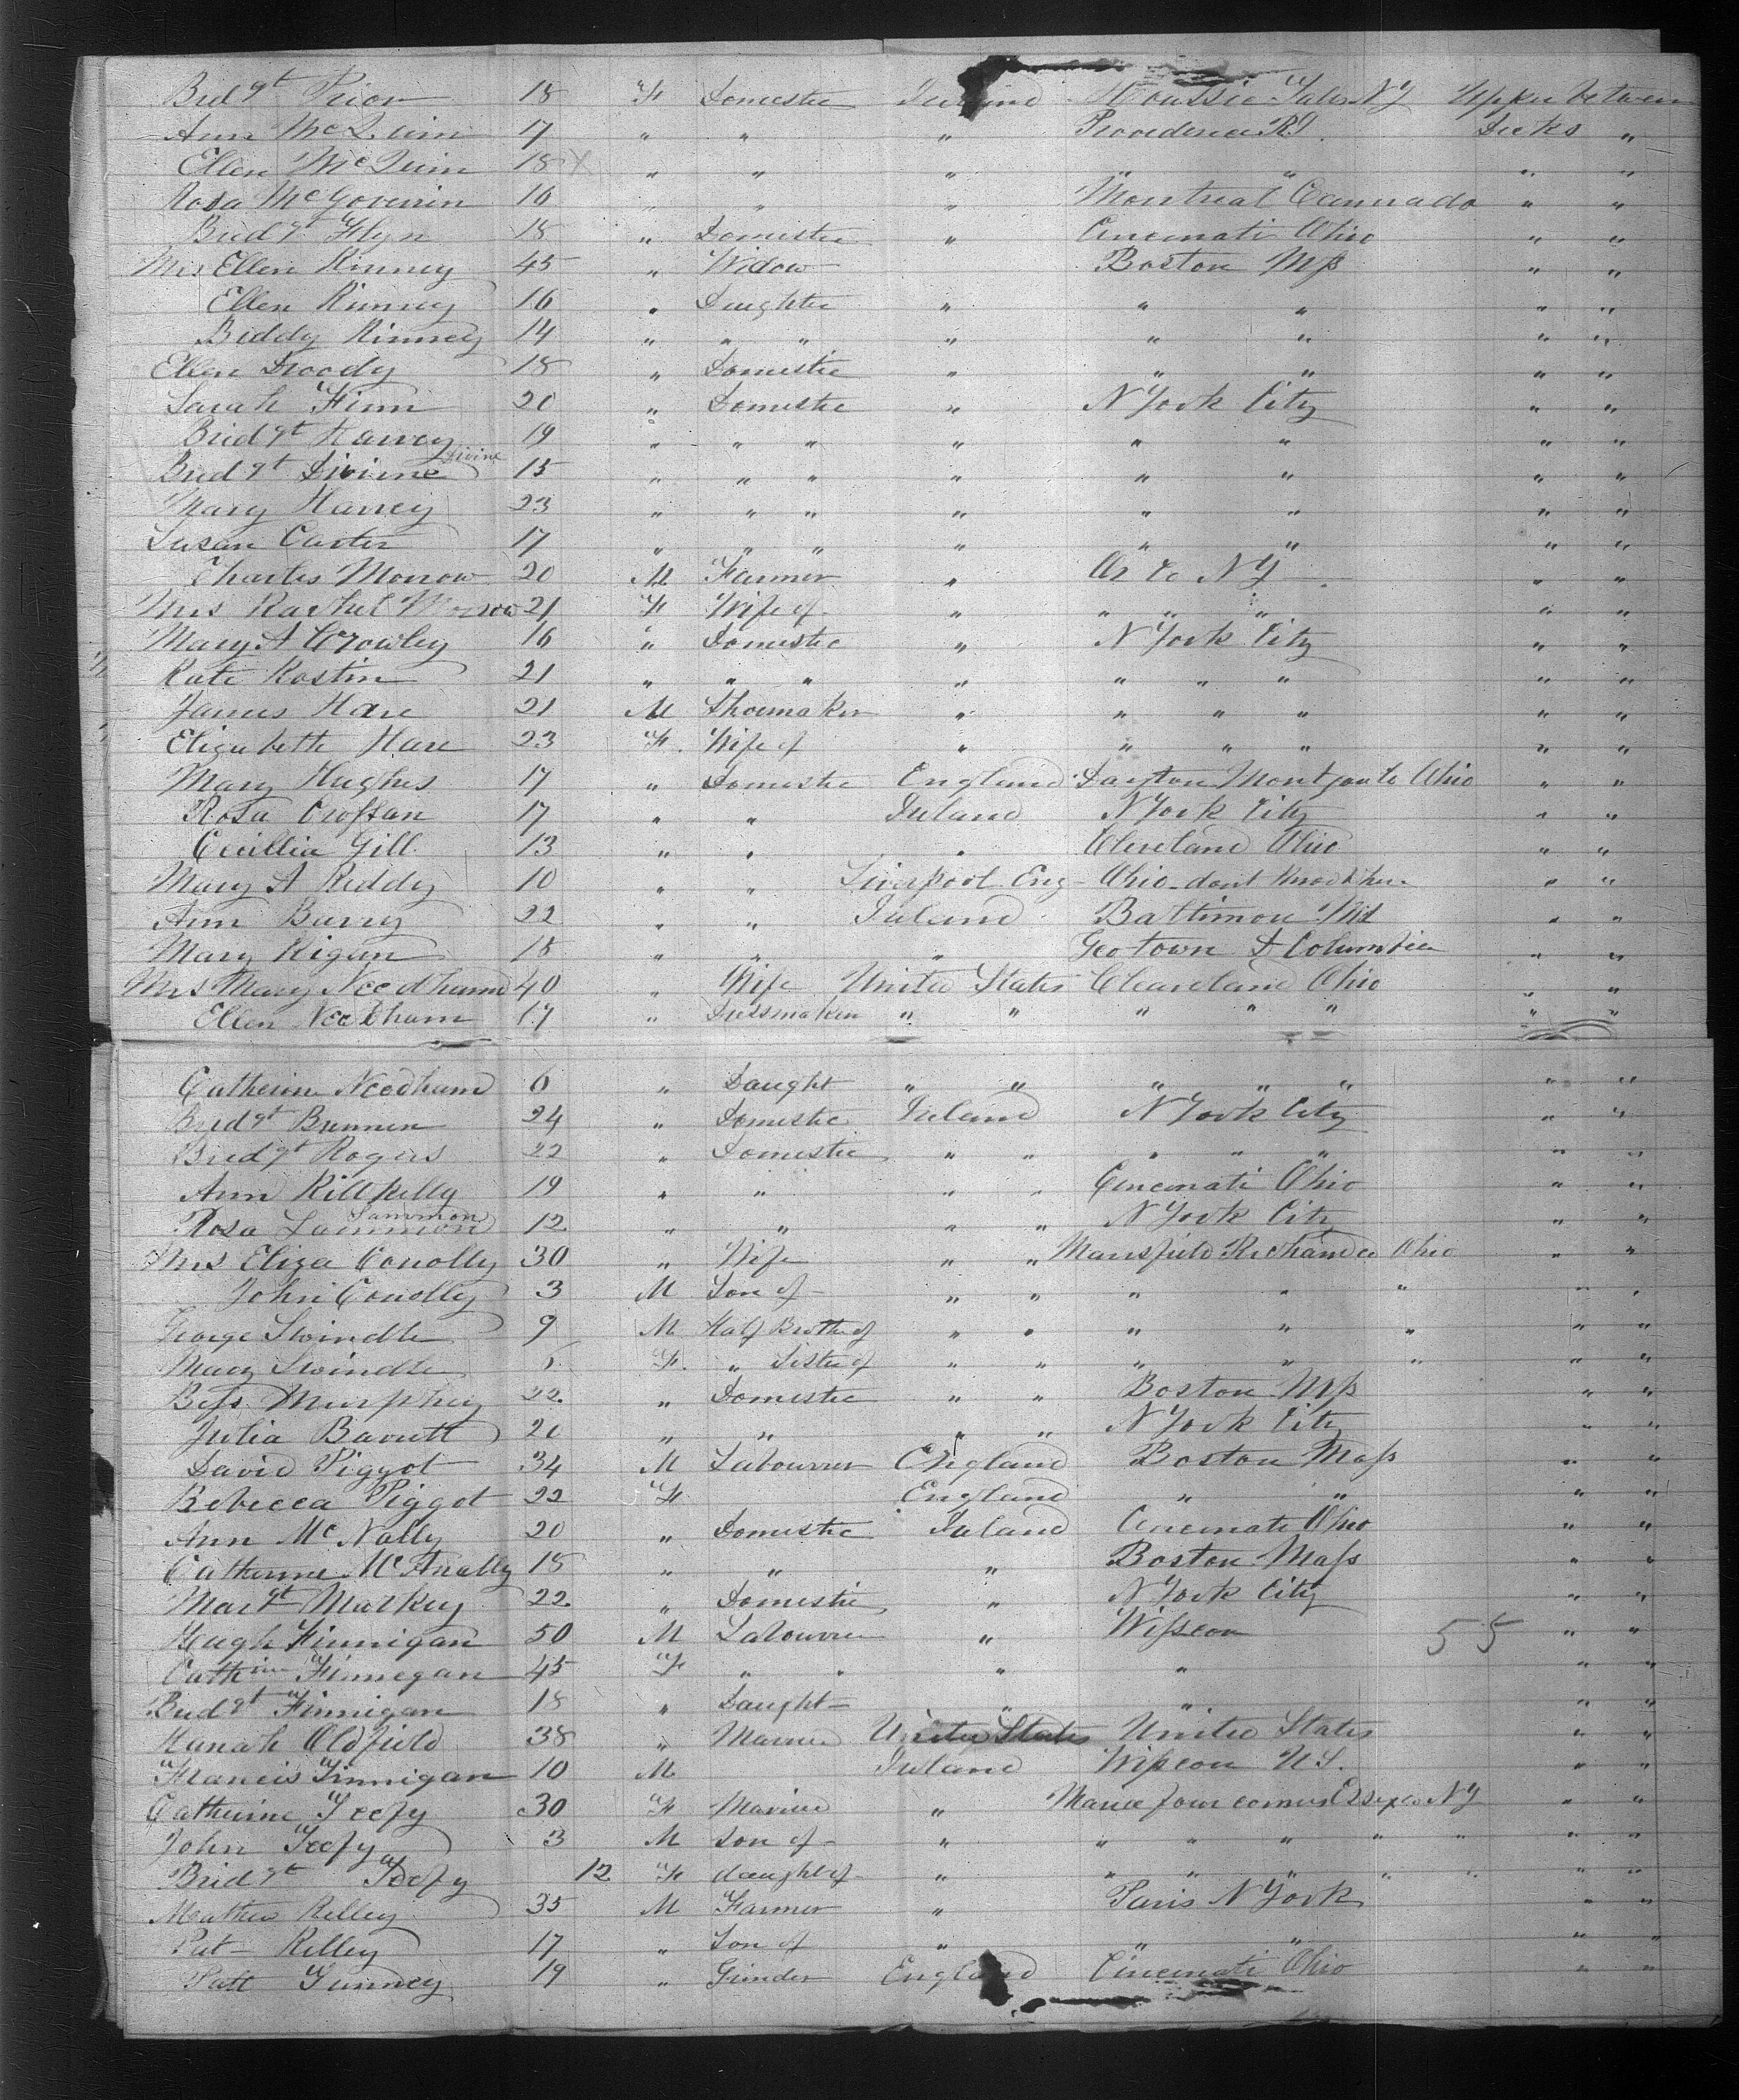 Bridgt Prior 18 F Domestic Ireland Houssic Falls NY Upper between
Ann McQuinn 17 " " " Providence RI. Decks "
Ellen McQuinn 18 X " " " " " " "
Rosa McGoverin 16 " " " Montreal Cannada " "
Bridgt Flyn 18 " Domestic " Cincinati Ohio " "
Mrs Ellen Kinney 45 " Widow Boston Mss " "
Ellen Kinney 16 " Daughter " " " " "
Biddy Kinney 14 " " " " " " " "
Ellen Droody 18 " Domestic " " " " "
Sarah Finn 20 " Domestic " N York City " "
Bridgt Harvey 19 " " " " " " " "
Bridgt Divine Divine 15 " " " " " " " "
Mary Harvey 23 " " " " " " " "
Susan Carter 17 " " " " " " " "
Charles Morrow 20 M Farmer " Co NY " "
Mrs Rachel Morrow 21 F Wife of " " " " " "
Mary A Crowley 16 " Domestic " N York City " "
Kate Kostin 21 " " " " " " " " "
James Hare 21 M Shoemaker " " " " " "
Elizabeth Hare 23 F. Wife of " " " " " "
Mary Hughes 17 " Domestic England Dayton Montgo Co Ohio " "
Rosa Crossan 17 " " Ireland N York City " "
Cicillia Gill 13 " " " Cleveland Ohio " "
Mary A Reddy 10 " " Liverpool Eng - Ohio - dont know where " "
Ann Barry 22 " " Ireland Baltimore Md " "
Mary Rigan 18 " " " Geotown D Columbia " "
Mrs Mary Needham 40 " Wife United States Cleaveland Ohio " "
Ellen Needham 17 " Dressmaker " " " " " " "
Catherine Needham 6 " Daught " " " " " " "
Bridgt Brennen 24 " Domestic Ireland N York City " "
Bridgt Rogers 22 " Domestic " " " " " " "
Ann Killkelly 19 " " " " Cincinati Ohio " "
Rosa Lammon Lammon 12 " " " " N York City " "
Mrs Eliza Conolly 30 " Wife " " Mansfield Richland co Ohio " "
John Conolly 3 M Son of " " " " " " "
George Swindle 9 M Half Brother of " " " " " " "
Mary Swindle F. " Sister of " " " " " " "
Bess Murphey 22 " Domestic " " Boston Mss " "
Julia Barrett 20 " " " " N York City " "
David Piggot 34 M Labourer England Boston Mass " "
Rebecca Piggot 22 F England " " " "
Ann McNally 20 " Domestic Ireland Cincinati Ohio " "
Catherine McAnally 18 " " " Boston Mass " "
Margt Markey 22 " Domestic " N York City " "
Hugh Finnigan 50 M Labourer " Wisscon 55 " "
Catherine Finnegan 45 F " " " " " "
Bridgt Finnigan 18 " Daught " " " "
Hanah Oldfield 38 " Married United States United States " "
Francis Finnigan 10 M Ireland Wisscon US. " "
Catherine Feefy 30 F Married " four corners Essex co NY " "
John Feefy 3 M Son of " " " " " " " "
Bridgt Feefy 12 F daught of " " " " " " " "
Mathew Kelley 35 M Farmer " Paris N York " "
Pat Kelley 17 " Son of " " " " "
Patt Gunney 19 " Grinder England Cincinati Ohio " "